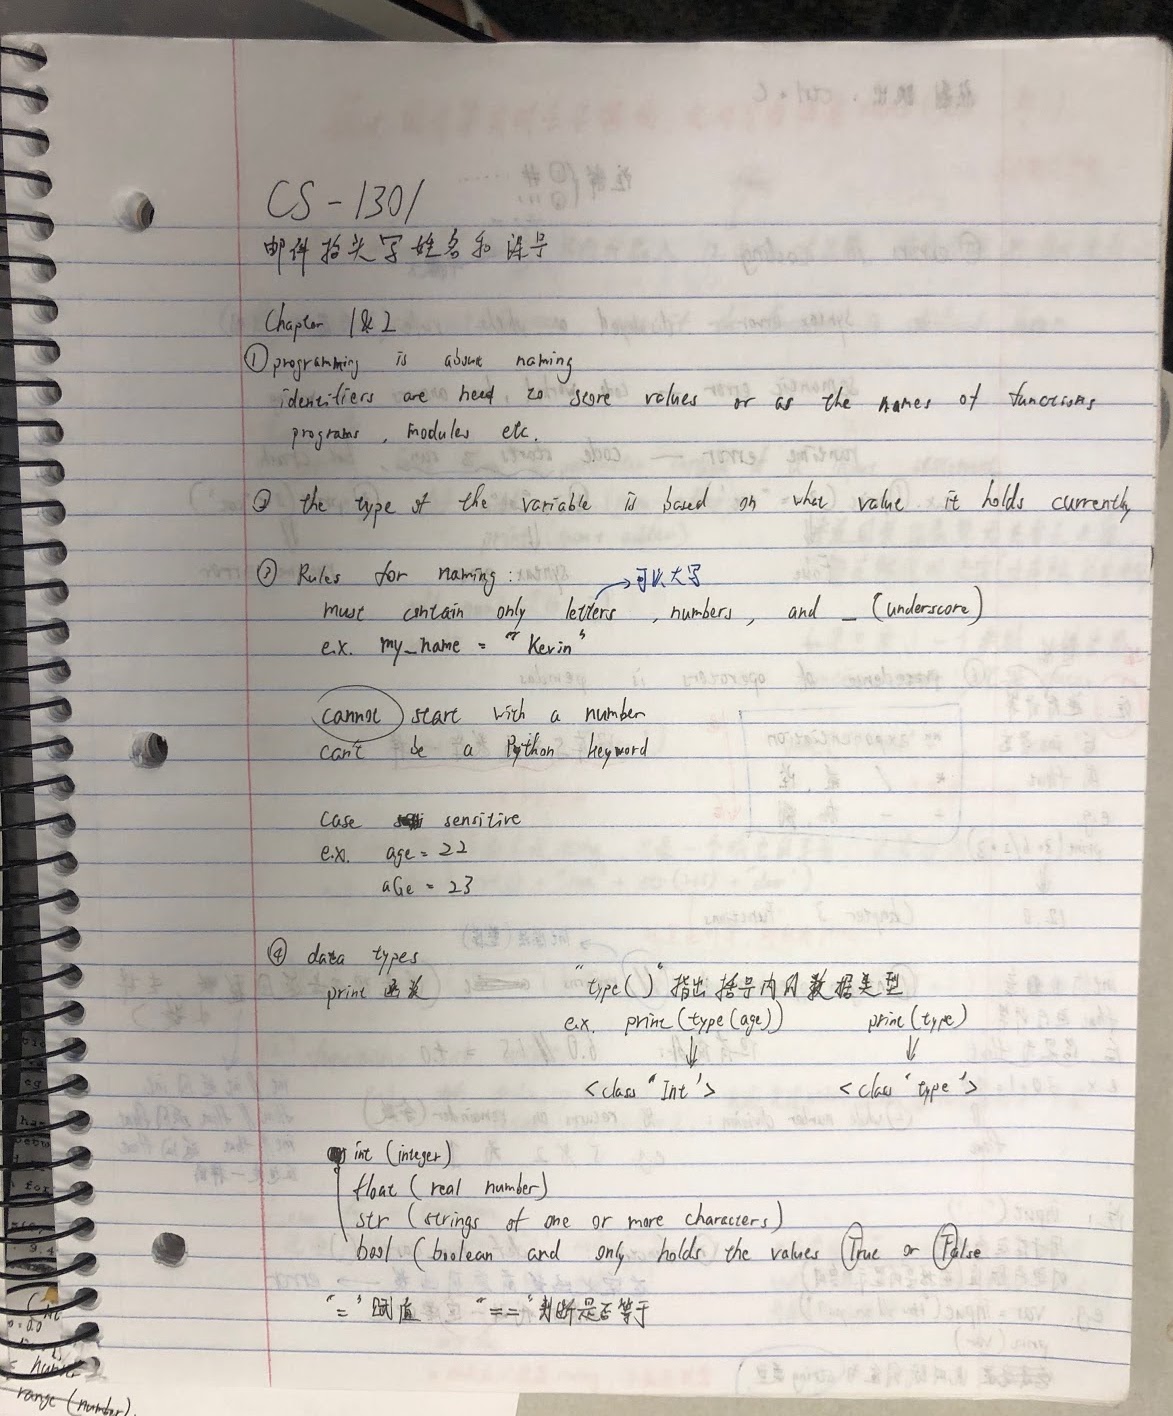 CS-1301
邮件抬头写姓名和课号
Chapter 1&2
① programming is about naming
identifiers are need to store values or as the names of functions
programs, modules etc.
② the type of the variable is based on what value it holds currently
③ Rules for naming: →可以大写
must contain only letters, numbers, and _ (underscore)
e.x. my_name = "Kevin"
cannot start with a number
can't be a Python keyword
case sensitive
e.x. age = 22
aGe = 23
④ data types
print 函数
"type()" 指出括号内的数据类型
e.x. print(type(age)) print(type)
↓ ↓
<class "Int'> <class 'type'>
int (integer)
float (real number)
str (strings of one or more characters)
bool (boolean and only holds the values True or False
"=" 赋值 "==" 判断是否等于
range (number).